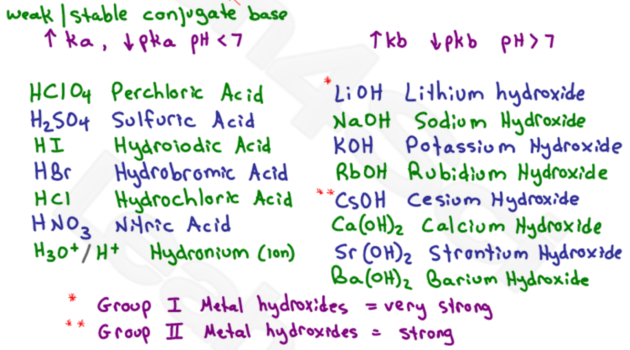 weak/stable conjugate base
↑ ka, ↓pka pH <7
↑kb ↓pkb pH>7
HClO4 Perchloric Acid
H2SO4 Sulfuric Acid
HI Hydroiodic Acid
HBr Hydrobromic Acid
HCl Hydrochloric Acid
HNO3 Nitric Acid
H3O+/H+ Hydronium (ion)
* LiOH Lithium hydroxide
NaOH Sodium Hydroxide
KOH Potassium Hydroxide
RbOH Rubidium Hydroxide
** CsOH Cesium Hydroxide
Ca(OH)2 Calcium Hydroxide
Sr(OH)2 Strontium Hydroxide
Ba(OH)2 Barium Hydroxide
* Group I Metal hydroxides = very strong
** Group II Metal hydroxides = strong